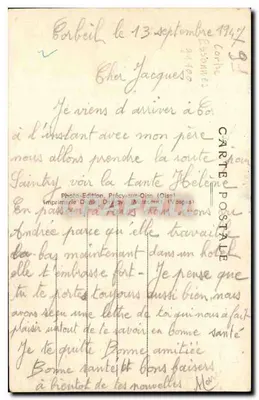 Corbeil le 13 septembre 1947
Cher Jacques
Je viens d'arriver à Co
à l'instant avec mon père
nous allons prendre la route pour
Saintry voir la tante Hélène
En pa
Andrée parce qu'elle travaille
bas maintenant dans un hotel
elle t'embrasse fort - Je pense que
tu te portes toujours aussi bien nous
avons reçu une lettre de toi qui nous a fait
plaisir surtout de te savoir en bonne santé
Je te quitte Bonne amitiée
Bonne santé et bons baisers
à bientot de tes nouvelles
CARTE POSTALE